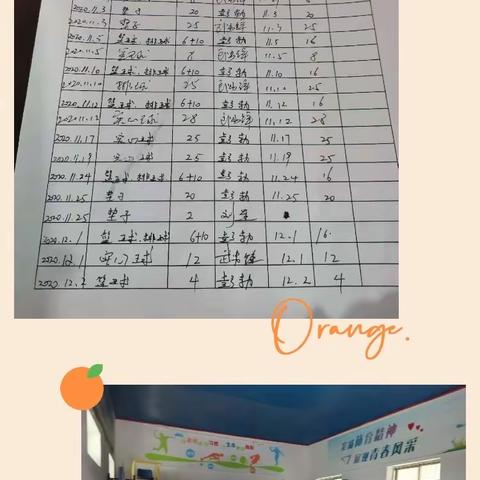 2020.11.3 垫子 20 11.3 20
2020.11.3 垫子 25 11.3 25
2020.11.5 篮球、排球 6+10 彭勃 11.5 16
2020.11.5 实心球 8 11.5 8
2020.11.10 篮球、排球 6+10 彭勃 11.10 16
2020.11.10 排球 25 11.10 25
2020.11.12 篮球、排球 6+10 彭勃 11.12 16
2020.11.12 实心球 28 11.12 28
2020.11.17 实心球 25 彭勃 11.17 25
2020.11.19 实心球 25 彭勃 11.19 25
2020.11.24 篮球、排球 6+10 彭勃 11.24 16
2020.11.25 垫子 20 彭勃 11.25 20
2020.11.25 垫子 2
2020.12.1 篮球、排球 6+10 彭勃 12.1 16
2020.12.1 实心球 12 12.1 12
2020.12.2 篮球 4 彭勃 12.2 4
Orange.
体育精神
展现青春风采